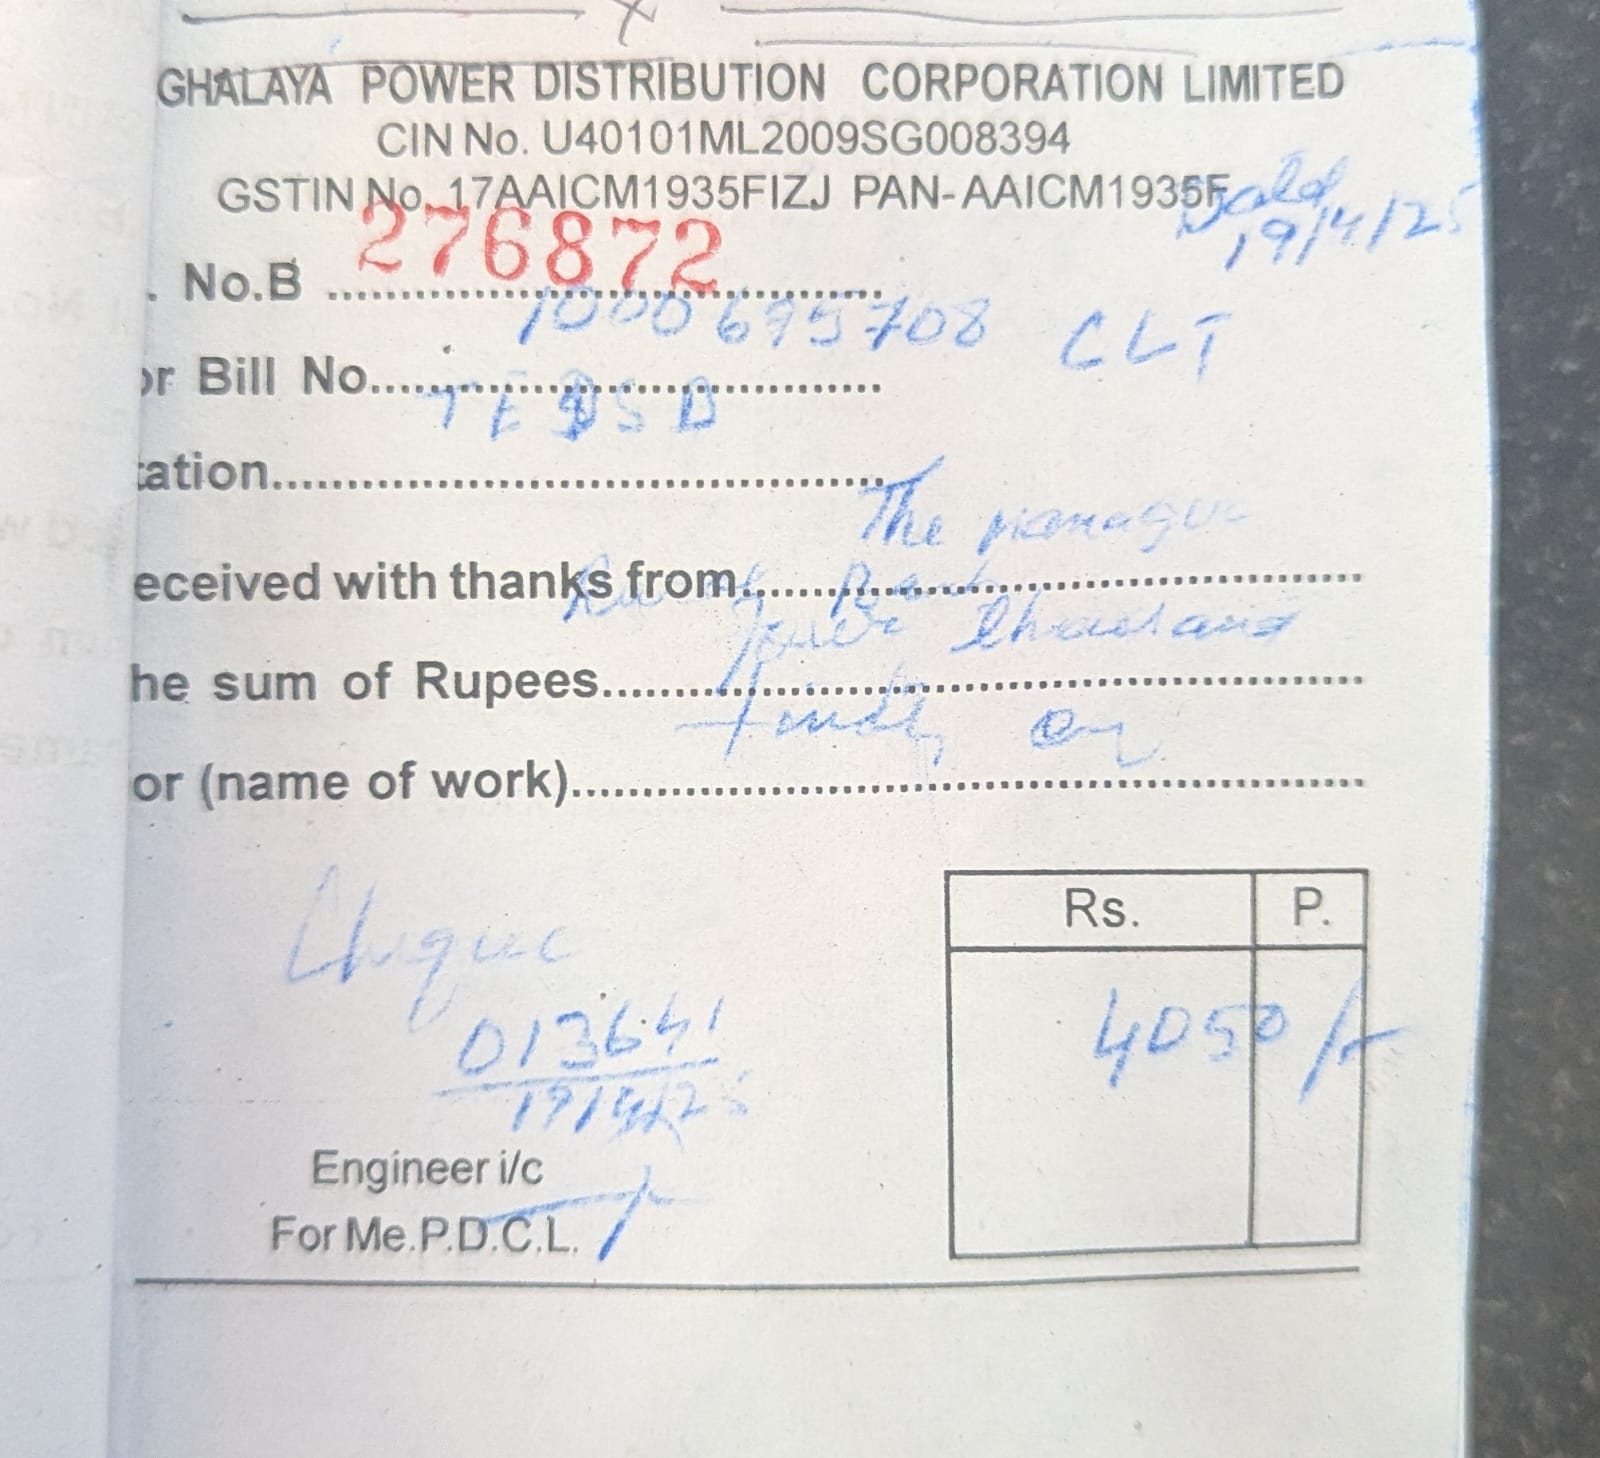 GHALAYA POWER DISTRIBUTION CORPORATION LIMITED
CIN No. U40101ML2009SG008394
GSTIN No. 17AAICM1935FIZJ PAN-AAICM1935F
19/4/25
. No.B 276872
1000695708 CLT
or Bill No.
tation
The Manager
eceived with thanks from
thousand
he sum of Rupees
or (name of work)
Rs. P.
Cheque
013641
4050/-
19/4/25
Engineer i/c
For Me.P.D.C.L.